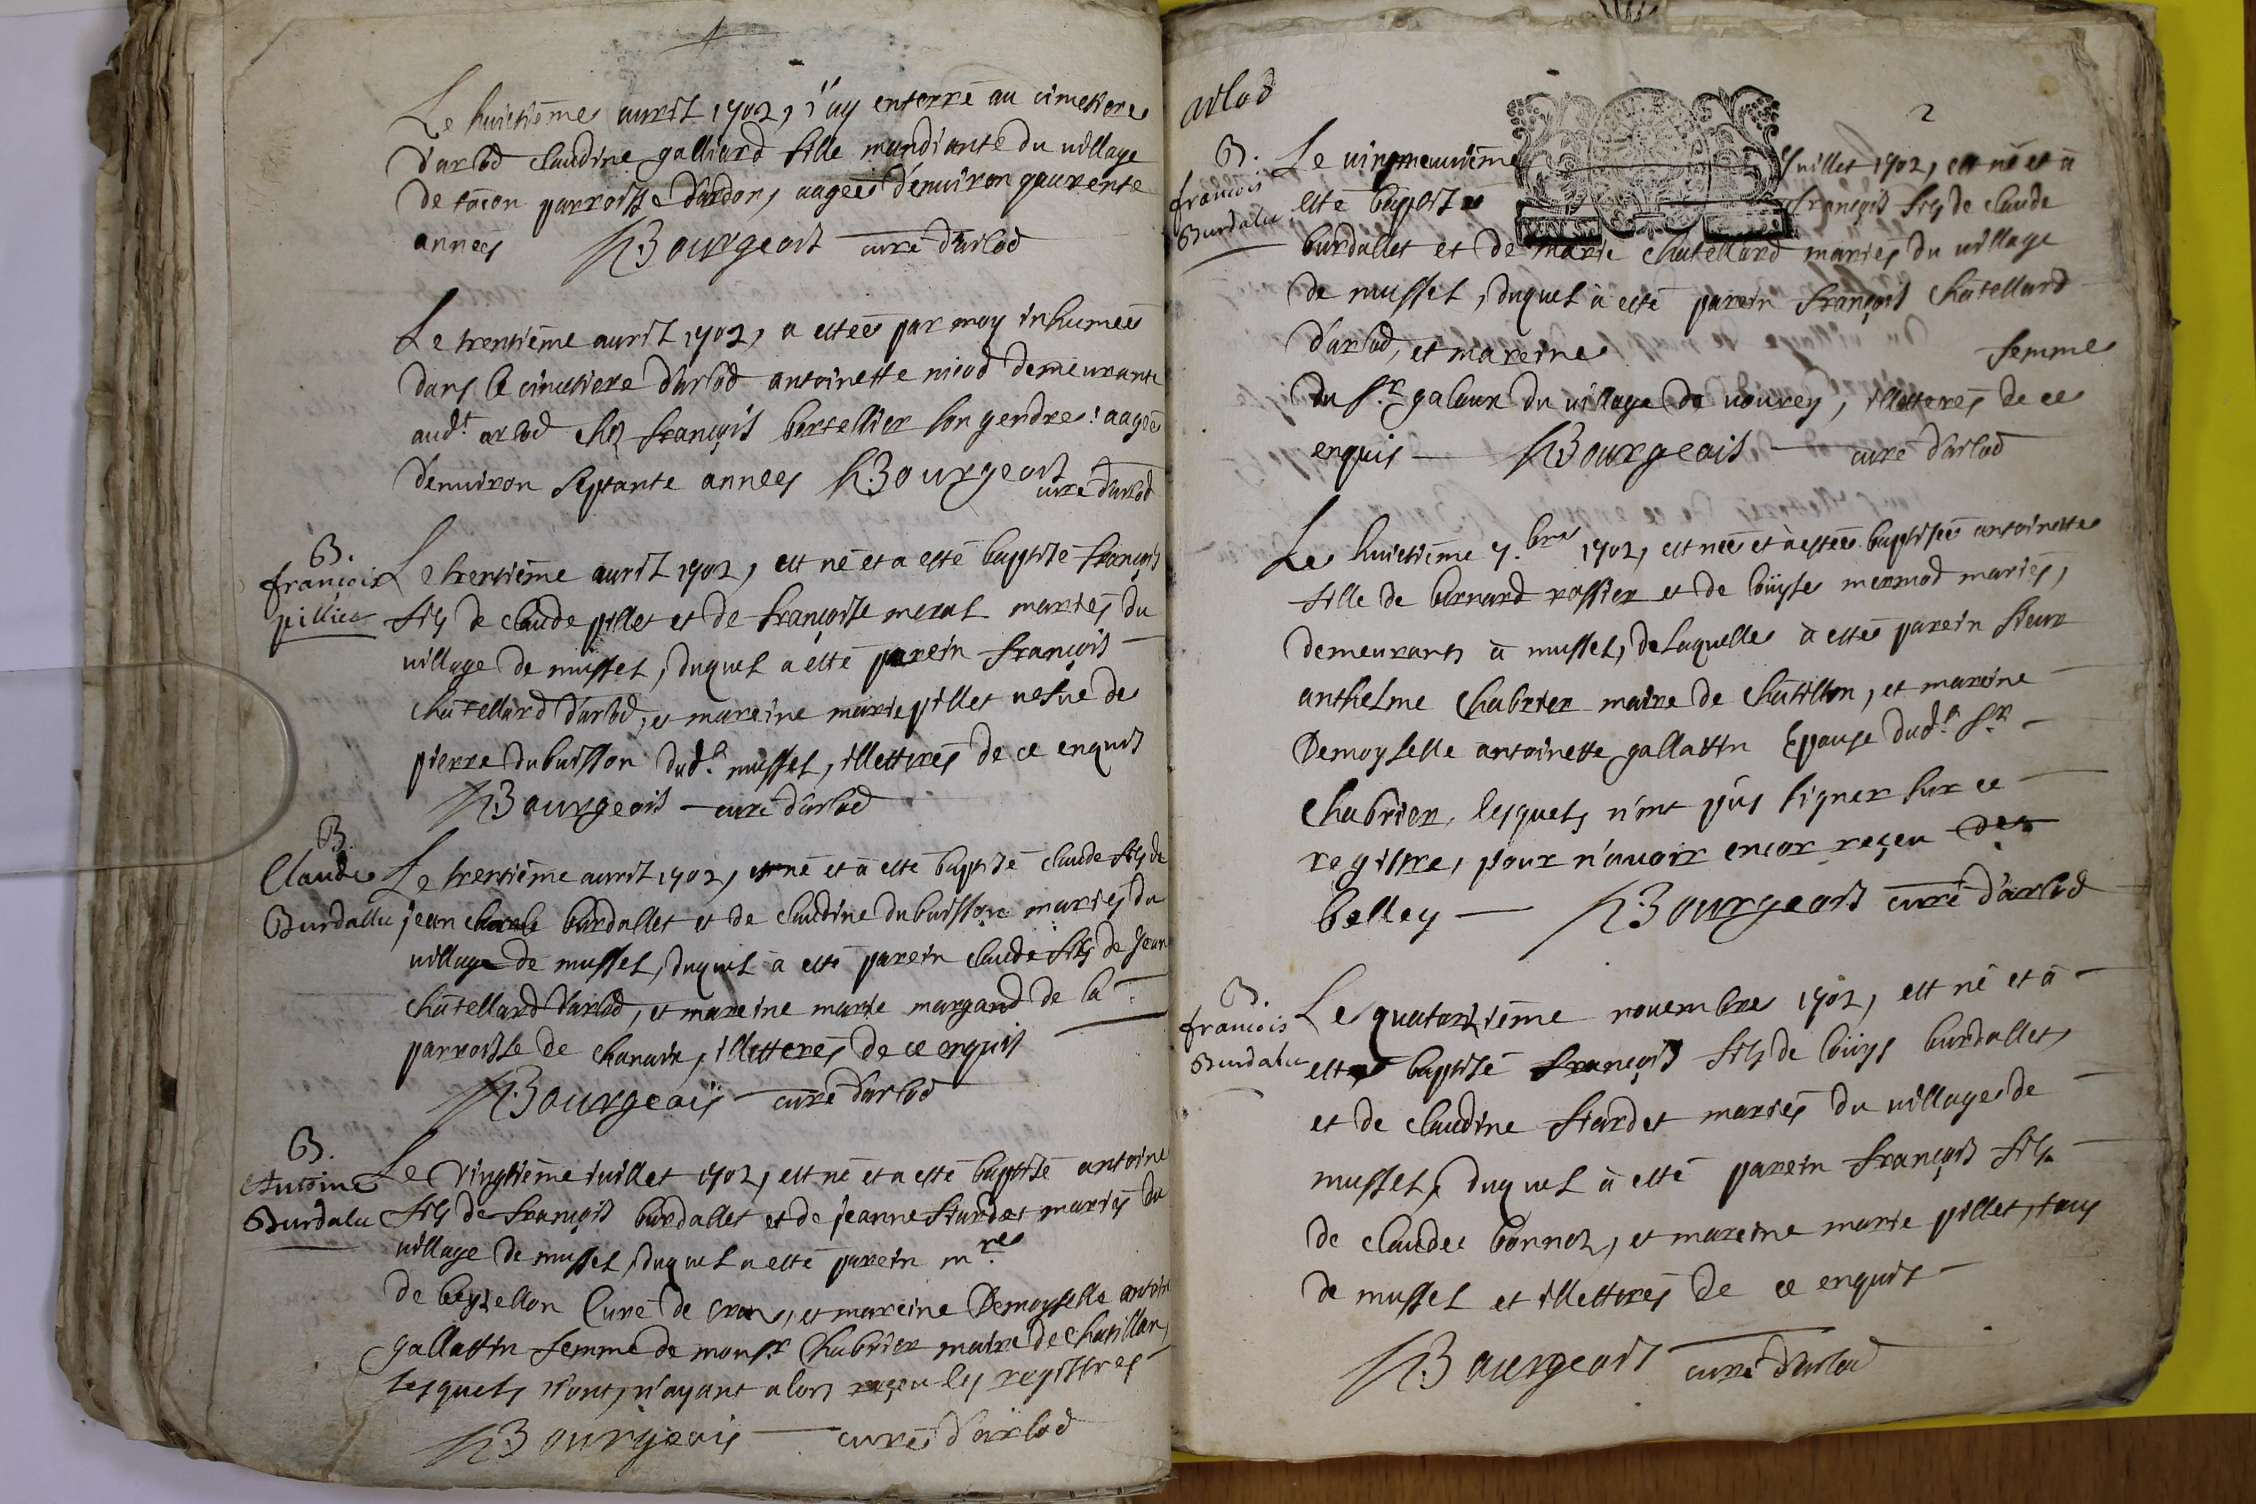 Le huictième avril 1702, i'ay enterré au cimetiere
d'arlod claudine galliard fille mandiante du village
de tacon parroisse d'ardon, aagée d'enuiron quarente
années h Bourgeois curé d'arlod
Le trentième auril 1702, a estée par moy inhumée
dans le cimetiere d'arlod antoinette nicod demeurante
audt arlod chez françois bertellier son gendre aagée
d'enuiron septante années h Bourgeois
curé d'arlod
B.
françois
pilliet
Le trentième auril 1702, est né et a esté baptisé françois
fils de claude pillet et de françoise meral mariés du
village de mussel, duquel a esté parein françois
chatellard d'arlod, et mareine marie pillet vefue de
pierre dubuisson dudt mussel, illettrés de ce enquis
h Bourgeois curé d'arlod
B.
Claude
Burdallu
Le trentième auril 1702, est né et à esté baptisé claude fils de
jean burdallet et de claudine dubuisson mariés du
village de mussel, duquel à esté parein claude fils de Jean
chatellard d'arlod, et mareine marie margand de la
parroisse de chanaix, illetterés de ce enquis
h Bourgeois curé d'arlod
B.
Antoine
Burdalu
Le vingtième iuillet 1702, est né et a esté baptisé antoine
fils de françois burdallet et de jeanne fiardet mariés du
village de mussel, duquel a esté parein mre
de Curé de cran, et mareine Demoyselle antoin
gallattin femme de monsr Chabrier maire de chatillon,
lesquels n'ont, n'ayant alors reçeu les registres
h Bourgeois curé d'arlod
arlod
2
B.
francois
Burdalu
Le vintneuuième Juillet 1702, est né et à
esté baptisé françois fils de claude
burdallet et de marie chatellard mariés du village
de mussel, duquel à esté parein françois chatellard
d'arlod, et mareine femme
du sr galloux du village de vouvey, illetterés de ce
enquis h Bourgeois curé d'arlod
Le huictième 7.bre 1702, est née et à estée baptisée antoinette
fille de bernard rossier et de loüyse mermod mariés,
demeurants à mussel, de laquelle à esté parein sieur
anthelme Chabrier maire de Chatillon, et mareine
Demoyselle antoinette gallattin Epouse dudt Sr
Chabrier, lesquels n'ont pûs signer sur ce
registre, pour n'avoir encor reçeu de
belley h Bourgeois curé d'arlod
B.
francois
Burdalu
Le quatorzième nouembre 1702, est né et à
esté baptisé françois fils de loüys burdallet,
et de claudine fiardet mariés du village de
mussel, duquel à esté parein françois fils
de claude bonnoz, et mareine marie pillet, tous
de mussel et illettrés de ce enquis
h Bourgeois curé d'arlod